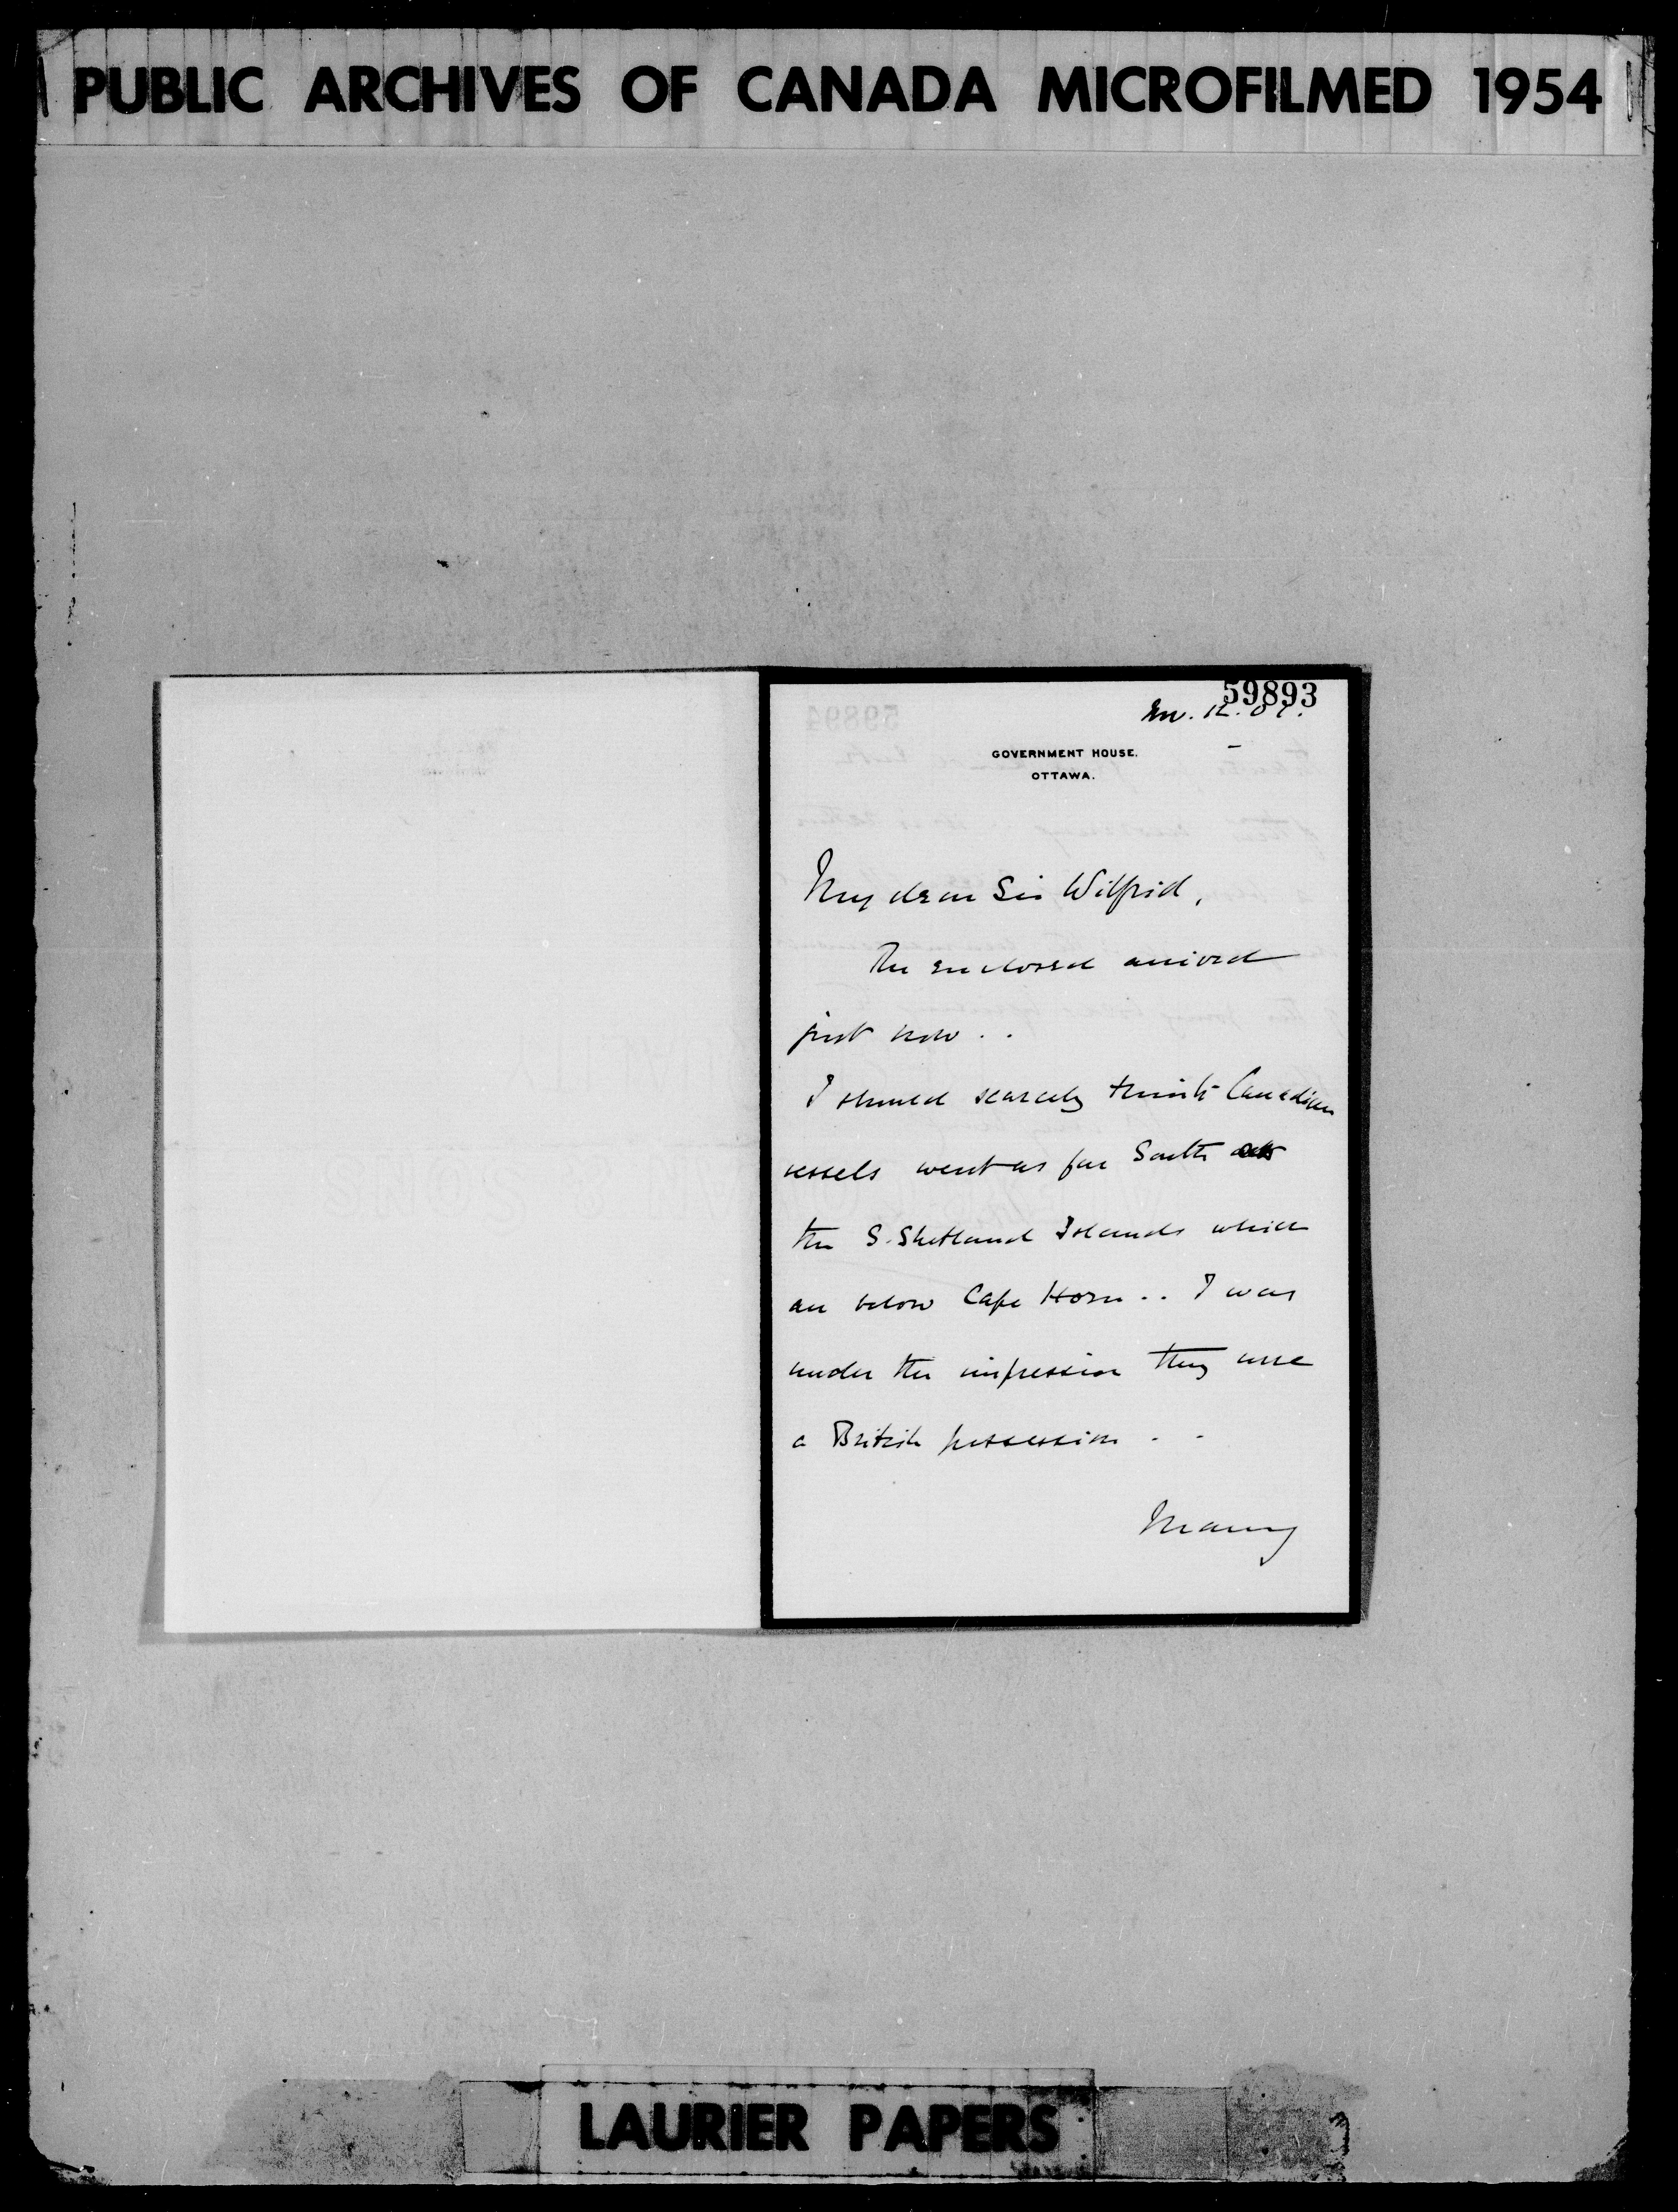 PUBLIC ARCHIVES OF CANADA MICROFILMED 1954
59893
GOVERNMENT HOUSE.
OTTAWA.
My dear Sir Wilfrid,
The enclosed arrived
just now . .
I should scarcely think Canadian
vessels went as far South as
the S. Shetland Islands which
are below Cape Horn . . I was
under the impression they were
a British possession . .
Many
LAURIER PAPERS